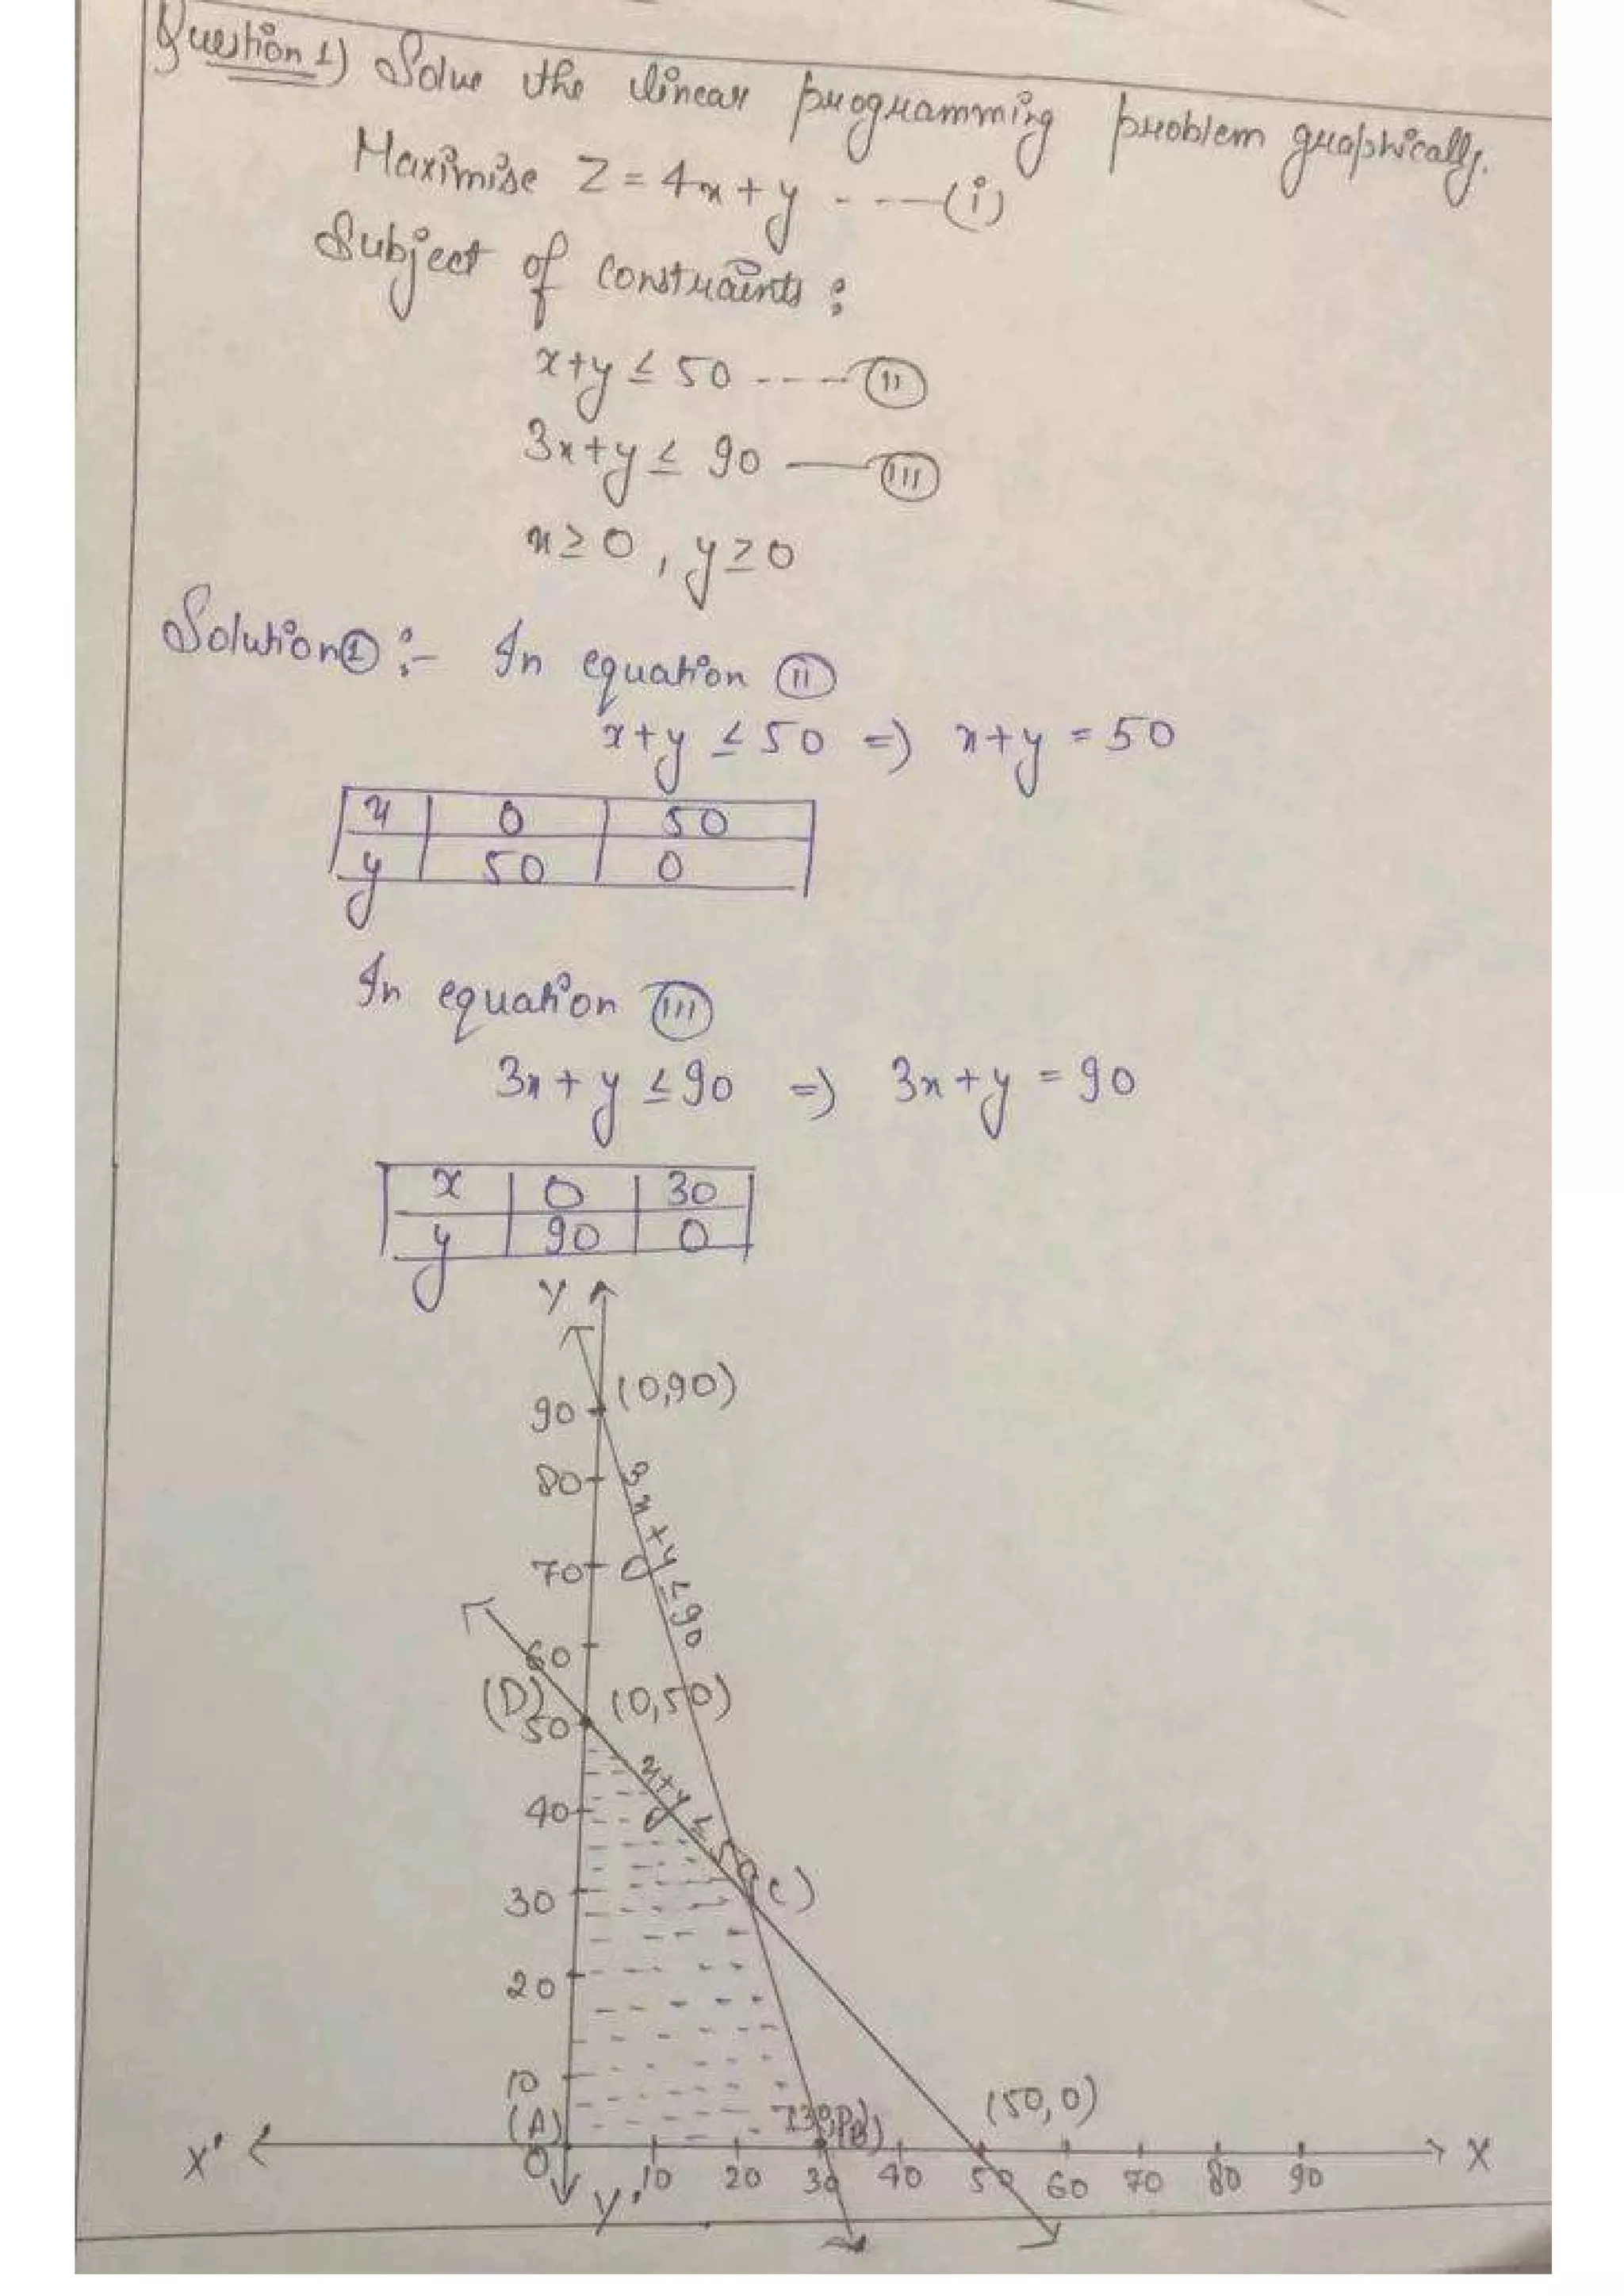 Question 1) Solve the linear programming problem graphically.
Maximise Z = 4x + y - - - — (i)
Subject of constraints :
x+y ≤ 50 - - - - (II)
3x+y ≤ 90 — (III)
x ≥ 0 , y ≥ 0
Solution① :- In equation (II)
x+y ≤ 50 => x+y = 50
x 0 50
y 50 0
In equation (III)
3x + y ≤ 90 => 3x + y = 90
x 0 30
y 90 0
Y
(0,90)
90
80
3x + y ≤ 90
70
60
(D) (0,50)
50
x+y ≤ 50
40
(C)
30
20
10
(A) (50,0)
(B)
X' X
O 10 20 30 40 50 60 70 80 90
Y'